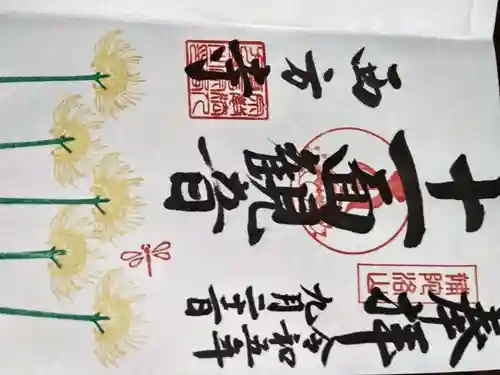 奉拝
補陀洛山
令和五年
九月二十一日
十一面観音
西方寺